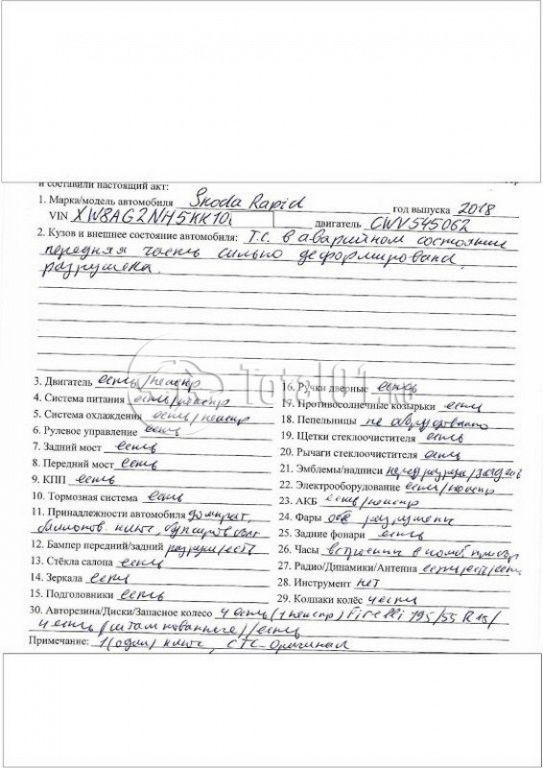 и составили настоящий акт:
1. Марка/модель автомобиля Skoda Rapid год выпуска 2018
VIN XW8AG2NH5KK10 двигатель CWV545062
2. Кузов и внешнее состояние автомобиля: Т.С. в аварийном состоянии
передняя часть сильно деформирована,
разрушена.
3. Двигатель есть/неиспр
4. Система питания есть/неиспр
5. Система охлаждения есть/неиспр
6. Рулевое управление есть
7. Задний мост есть
8. Передний мост есть
9. КПП есть
10. Тормозная система есть
11. Принадлежности автомобиля домкрат,
баллонов. ключ,
12. Бампер передний/задний разруш/есть
13. Стёкла салона есть
14. Зеркала есть
15. Подголовники есть
16. Ручки дверные есть
17. Противосолнечные козырьки есть
18. Пепельницы не оборудовано
19. Щетки стеклоочистителя есть
20. Рычаги стеклоочистителя есть
21. Эмблемы/надписи перед разруш/
22. Электрооборудование есть/неиспр
23. АКБ есть/неиспр
24. Фары обе разрушены
25. Задние фонари есть
26. Часы встроены в комб. прибор
27. Радио/Динамики/Антенна есть/есть/есть
28. Инструмент нет
29. Колпаки колёс 4 есть
30. Авторезина/Диски/Запасное колесо 4 есть (1 неиспр) Pirelli 195/55 R15/
4 есть (штампованные)/есть
Примечание: 1(один) ключ, СТС-оригинал
Total01.ru